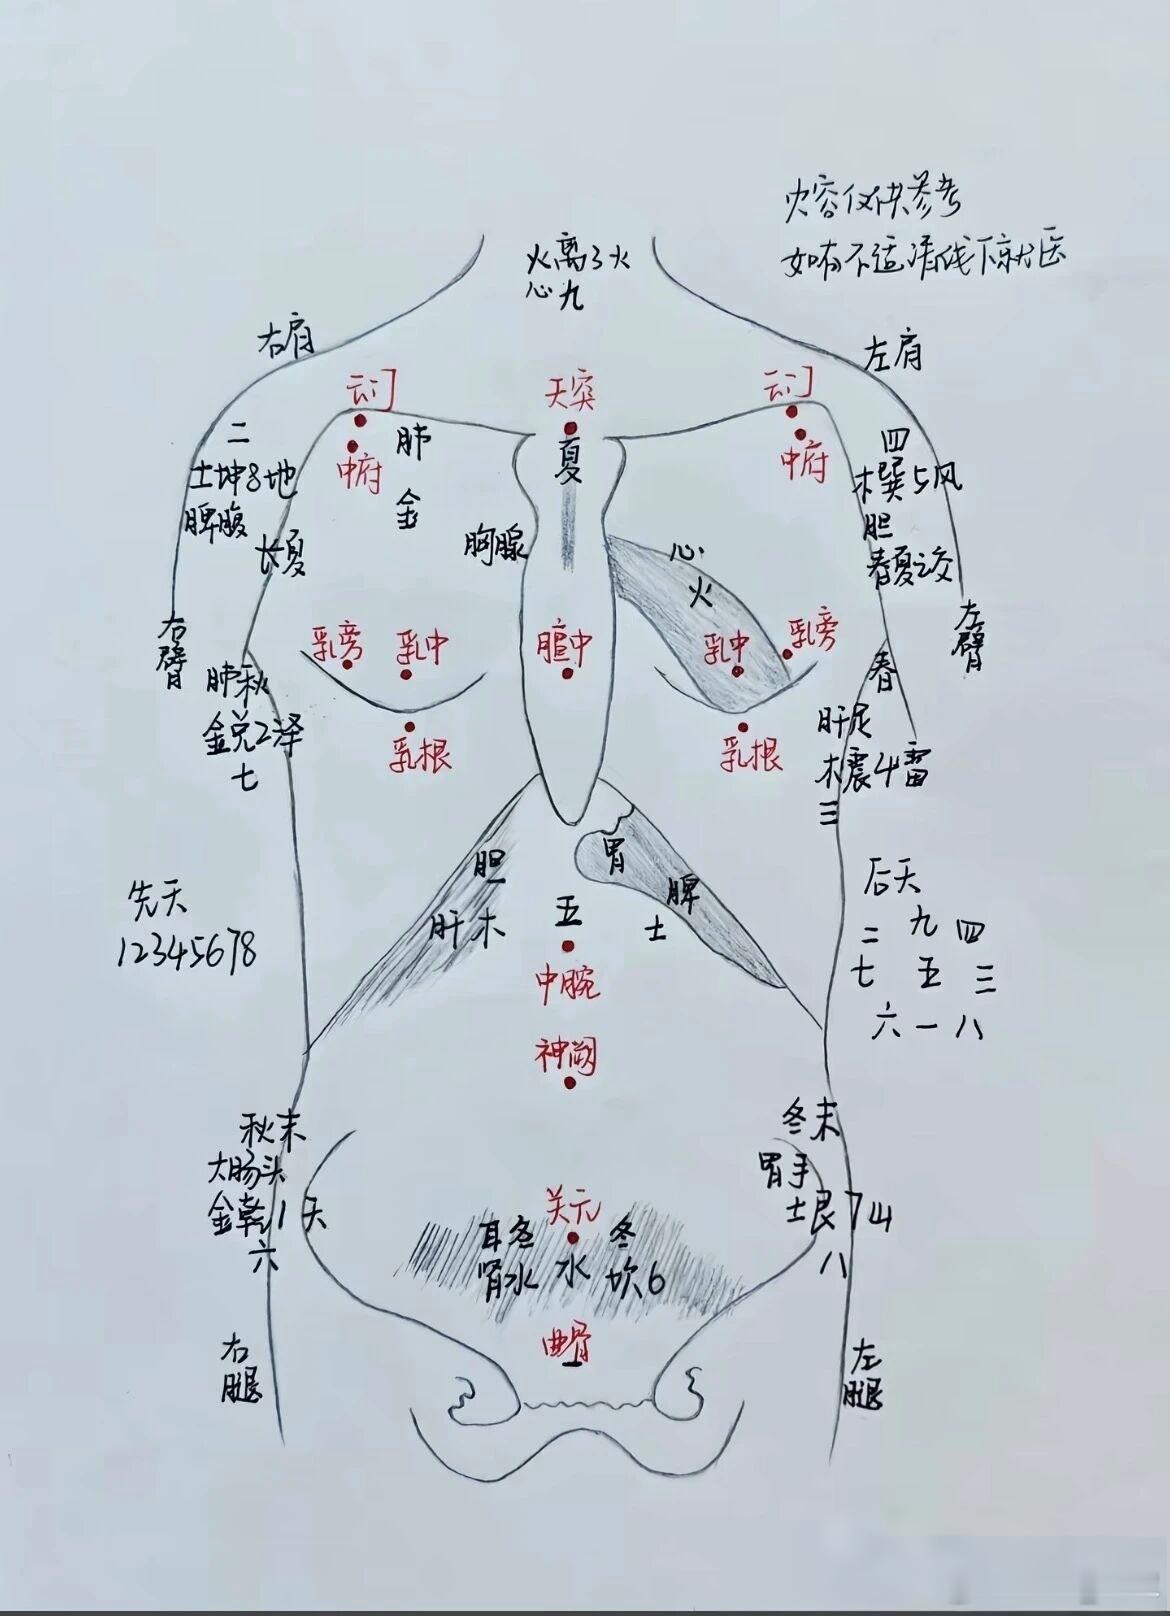 内容仅供参考
如有不适请线下就医
火离3火
心九
右肩
左肩
云门
天突
云门
中府
肺
金
夏
中府
二
土坤8地
脾腹
长夏
四
木巽5风
胆
春夏之交
胸腺
心
火
右臂
左臂
乳旁
乳中
膻中
乳中
乳旁
春
肺秋
金兑2泽
七
肝足
木震4雷
三
乳根
乳根
胆
肝木
胃
脾
土
五
中脘
神阙
先天
12345678
后天
九
二 四
七 五 三
六 一 八
秋末
大肠头
金乾1天
六
冬末
胃手
土艮7山
八
关元
耳冬
肾水
水
冬
坎6
曲骨
一
右腿
左腿